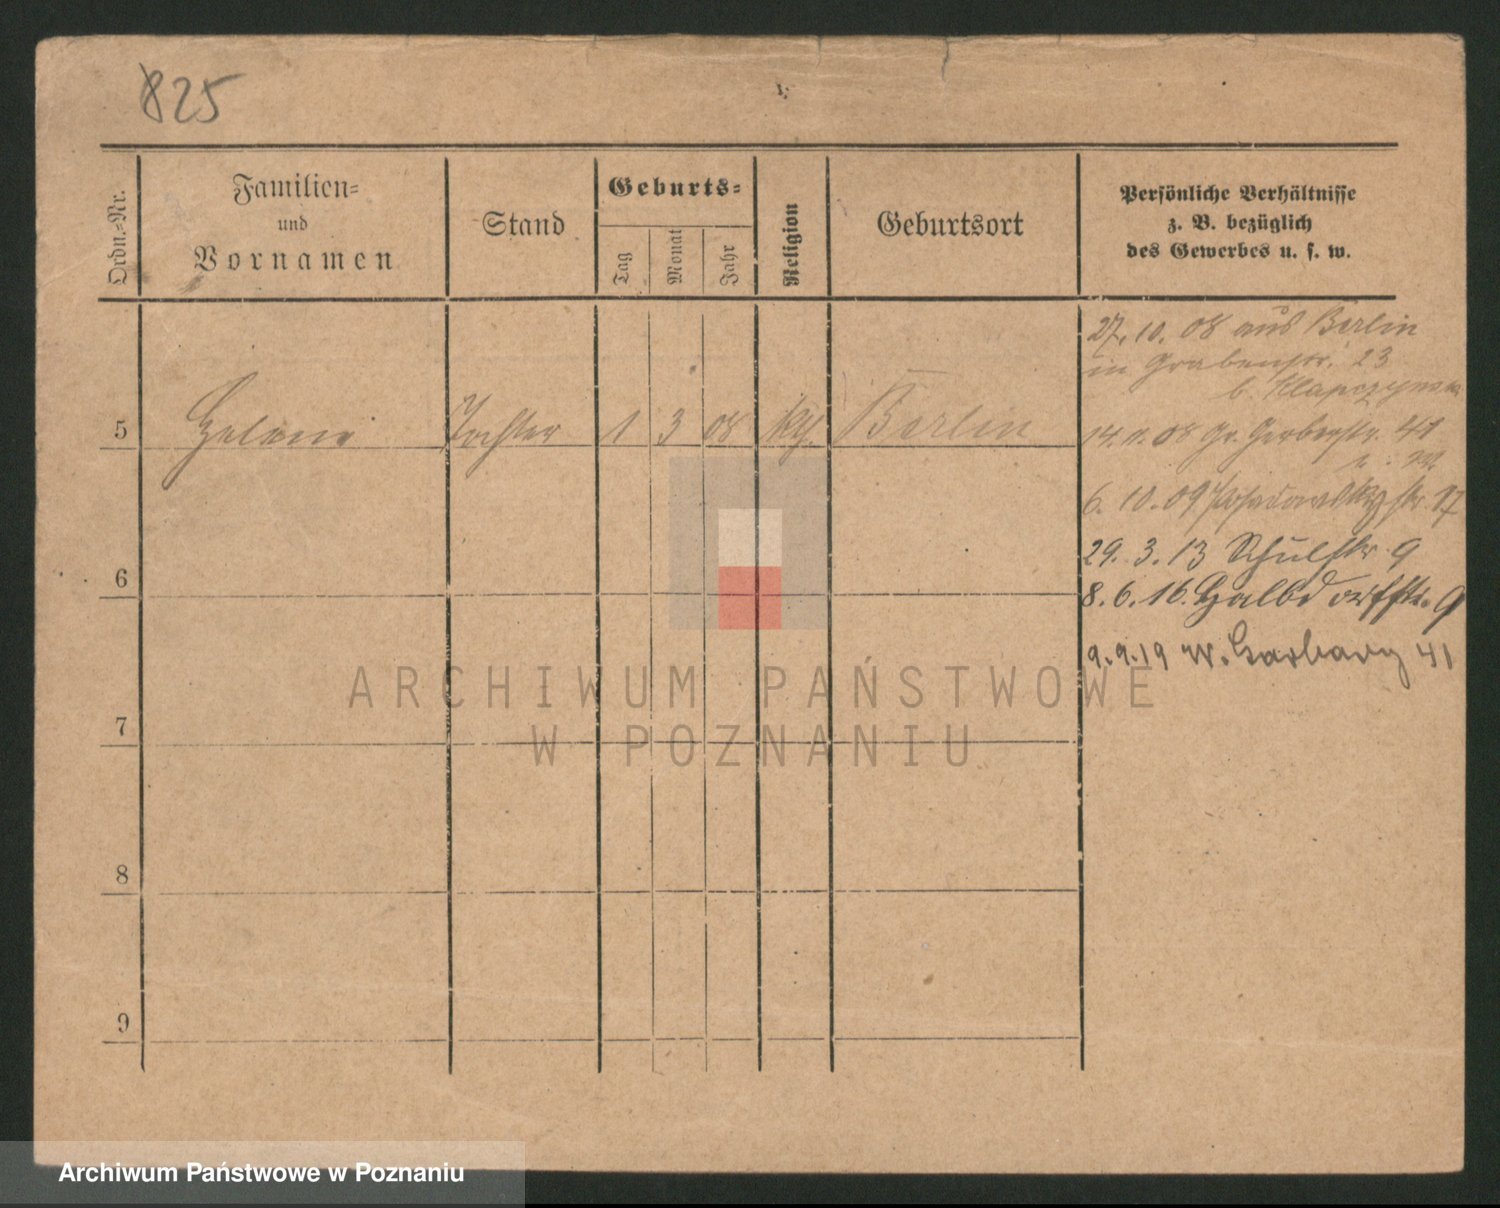 825
Ordn.-Nr.
Familien-
und
Vornamen
Stand
Geburts-
Tag
Monat
Jahr
Religion
Geburtsort
Persönliche Verhältnisse
z. B. bezüglich
des Gewerbes u. s. w.
27. 10. 08 aus Berlin
in Grabenstr. 23
b.
5 Helene Tochter 1 3 08 kth. Berlin
14. 11. 08 Gr. Gerberstr. 41
6. 10. 09 Posadowskystr. 17
29. 3. 13 Schulstr. 9
6
8. 6. 16. Halbdorfstr. 9
9. 9. 19 W. Garbary 41
ARCHIWUM PAŃSTWOWE
W POZNANIU
7
8
9
Archiwum Państwowe w Poznaniu